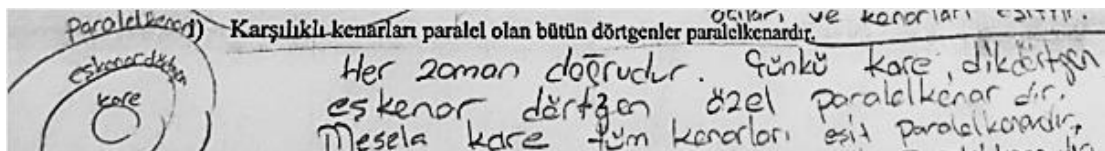 açıları ve kenarları eşittir.
Paralelkenar
d) Karşılıklı kenarları paralel olan bütün dörtgenler paralelkenardır.
eşkenar dörtgen
kare
Her zaman doğrudur. Çünkü kare, dikdörtgen
eşkenar dörtgen özel paralelkenar dır.
Mesela kare tüm kenarları eşit paralelkenardır,